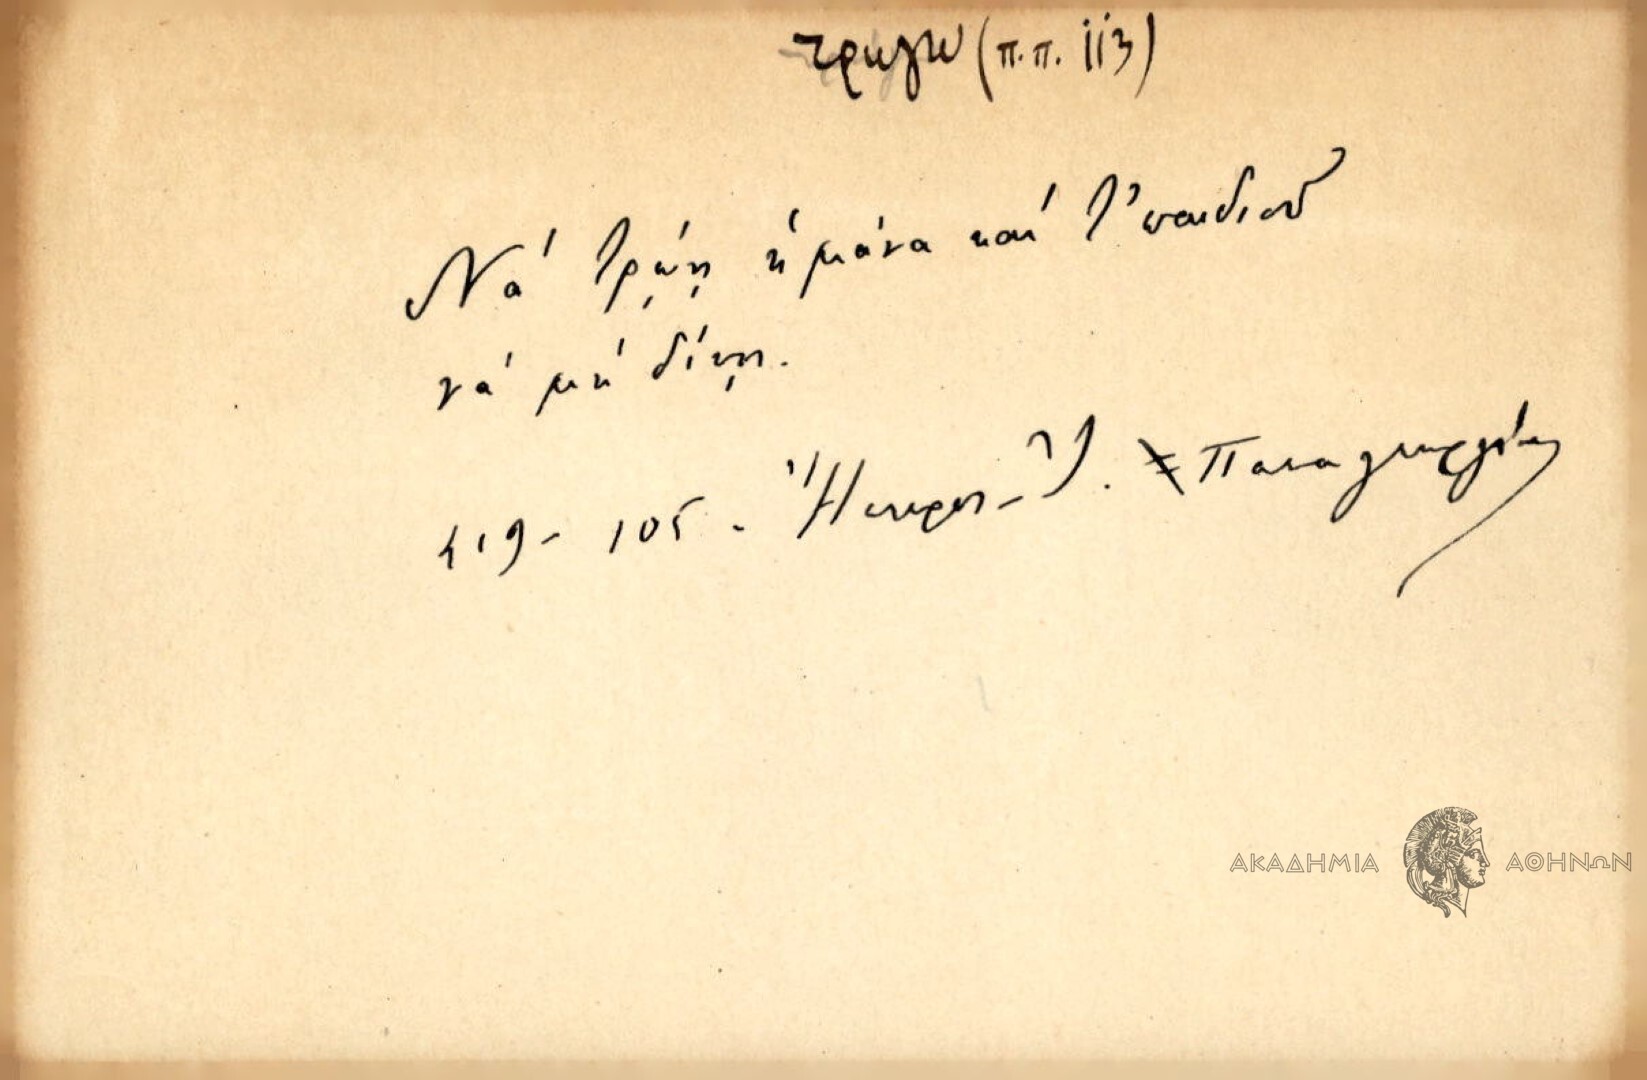 τρώγω (π.π. 113)
Νὰ τρώῃ ἡ μάνα καὶ τ' παιδιοῦ
νὰ μὴ δίνῃ.
419 - 105 - Ἤπειρος - Παπαγεωργίου
ΑΚΑΔΗΜΙΑ ΑΘΗΝΩΝ